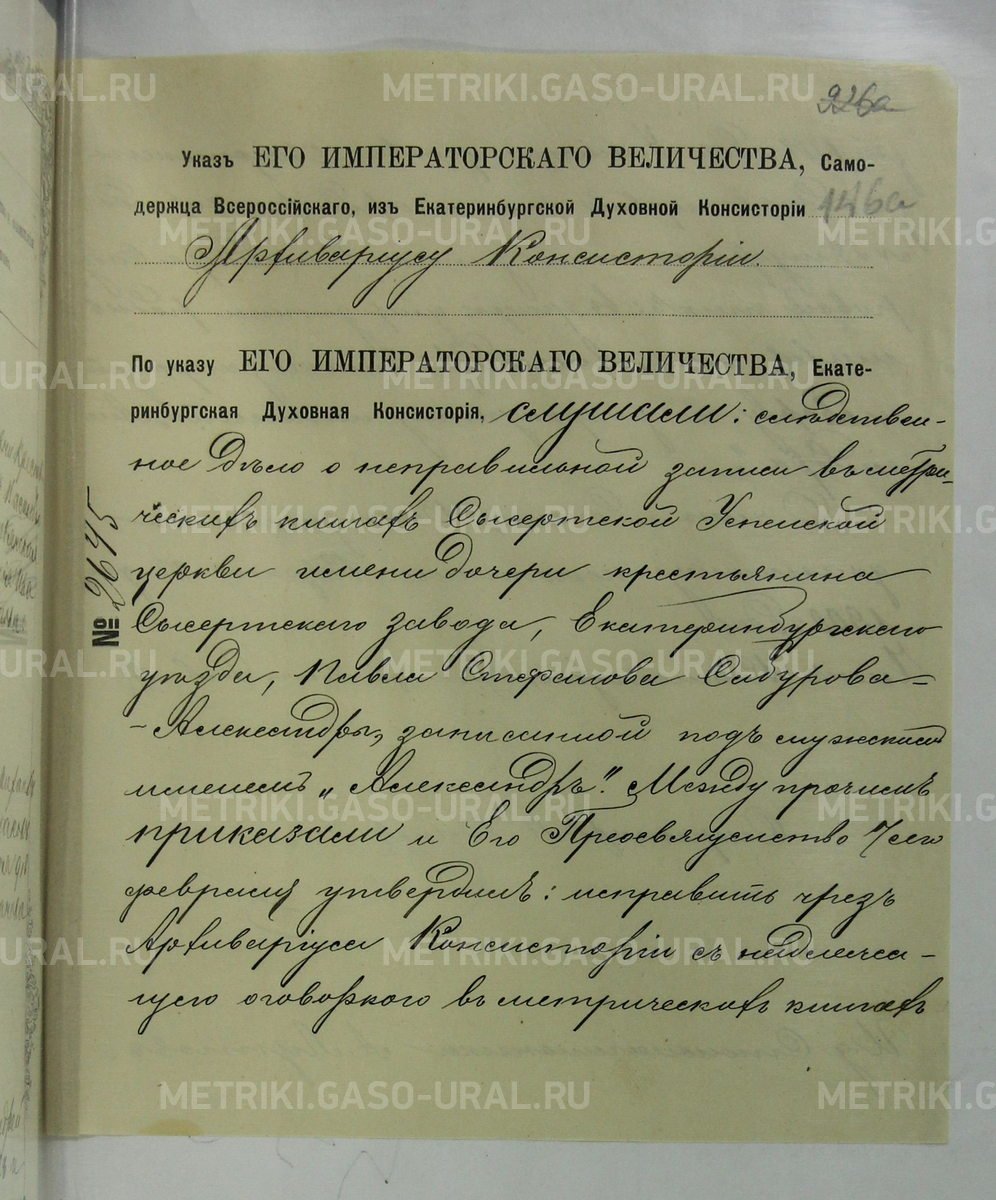 226а
Указъ ЕГО ИМПЕРАТОРСКАГО ВЕЛИЧЕСТВА, Само-
держца Всероссійскаго, изъ Екатеринбургской Духовной Консисторіи 146а
Архиваріусу Консисторіи.
По указу ЕГО ИМПЕРАТОРСКАГО ВЕЛИЧЕСТВА, Екате-
ринбургская Духовная Консисторія, слушали: слѣдствен-
ное дѣло о неправильной записи въ метри-
ческихъ книгахъ Сысертской Успенской
церкви имени дочери крестьянина
№ 2645
Сысертскаго завода, Екатеринбургскаго
уѣзда, Павла Стефанова Сабурова-
-Александры, записанной подъ мужскимъ
именемъ „Александръ". Между прочимъ
приказали и Его Преосвященство 7 сего
февраля утвердилъ: исправить чрезъ
Архиваріуса Консисторіи съ надлежа-
щею оговоркою въ метрическихъ книгахъ
METRIKI.GASO-URAL.RU